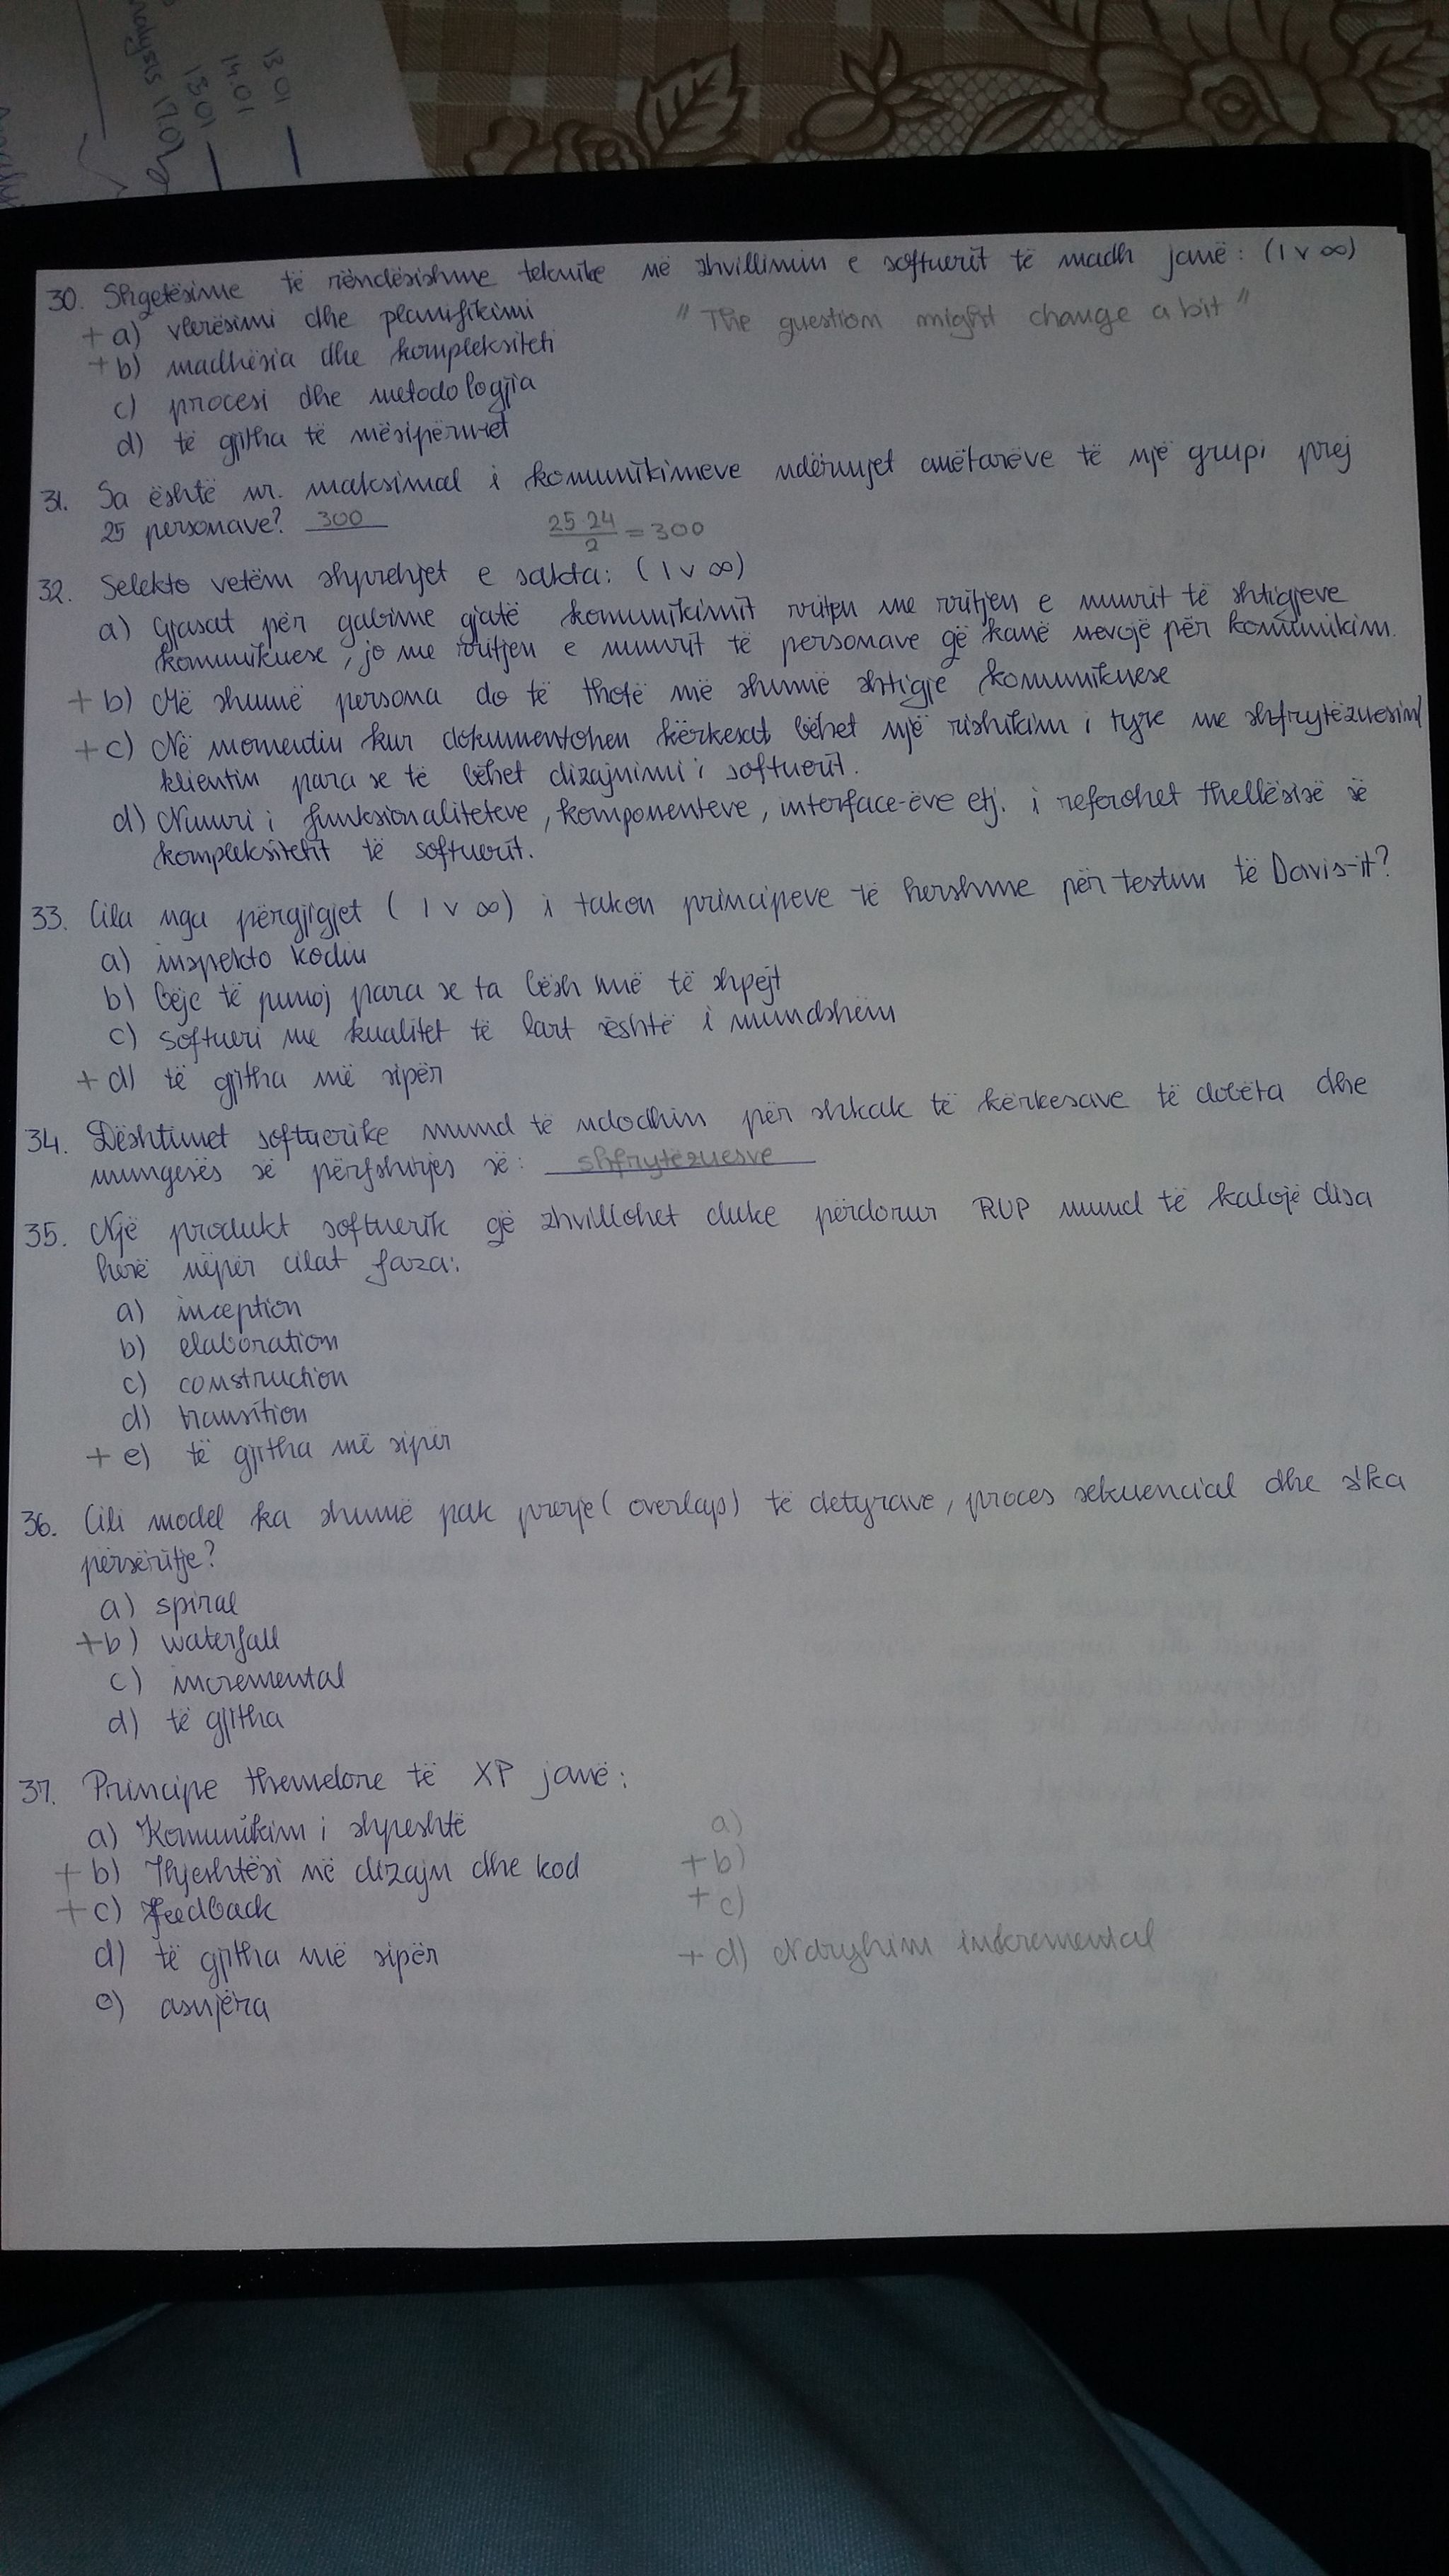 analysis 17.01
13.01
14.01
13.01
30. Shqetësime të rëndësishme teknike në zhvillimin e softuerit të madh janë: (1 v ∞)
+ a) vlerësimi dhe planifikimi "The question might change a bit"
+ b) madhësia dhe kompleksiteti
c) procesi dhe metodologjia
d) të gjitha të mësipërmet
31. Sa është nr. maksimal i komunikimeve ndërmjet anëtarëve të një grupi prej
25 personave? 300 25·24/2 = 300
32. Selekto vetëm shprehjet e sakta: (1 v ∞)
a) Gjasat për gabime gjatë komunikimit rriten me rritjen e numrit të shtigjeve
komunikuese, jo me rritjen e numrit të personave që kanë nevojë për komunikim.
+ b) Më shumë persona do të thotë më shumë shtigje komunikuese
+ c) Në momentin kur dokumentohen kërkesat bëhet një rishikim i tyre me shfrytëzuesin/
klientin para se të bëhet dizajnimi i softuerit.
d) Numri i funksionaliteteve, komponenteve, interface-ëve etj. i referohet thellësisë së
kompleksitetit të softuerit.
33. Cila nga përgjigjet (1 v ∞) i takon principeve të hershme për testim të Davis-it?
a) inspekto kodin
b) bëje të punoj para se ta bësh më të shpejt
c) softueri me kualitet të lart është i mundshëm
+ d) të gjitha më sipër
34. Dështimet softuerike mund të ndodhin për shkak të kërkesave të dobëta dhe
mungesës së përfshirjes së: shfrytëzuesve
35. Një produkt softuerik që zhvillohet duke përdorur RUP mund të kalojë disa
herë nëpër cilat faza:
a) inception
b) elaboration
c) construction
d) transition
+ e) të gjitha më sipër
36. Cili model ka shumë pak prerje (overlaps) të detyrave, proces sekuencial dhe s'ka
përsëritje?
a) spiral
+ b) waterfall
c) incremental
d) të gjitha
37. Principe themelore të XP janë:
a) Komunikim i shpeshtë a)
+ b) Thjeshtësi në dizajn dhe kod + b)
+ c) Feedback + c)
d) të gjitha më sipër + d) Ndryshim inkremental
e) asnjëra